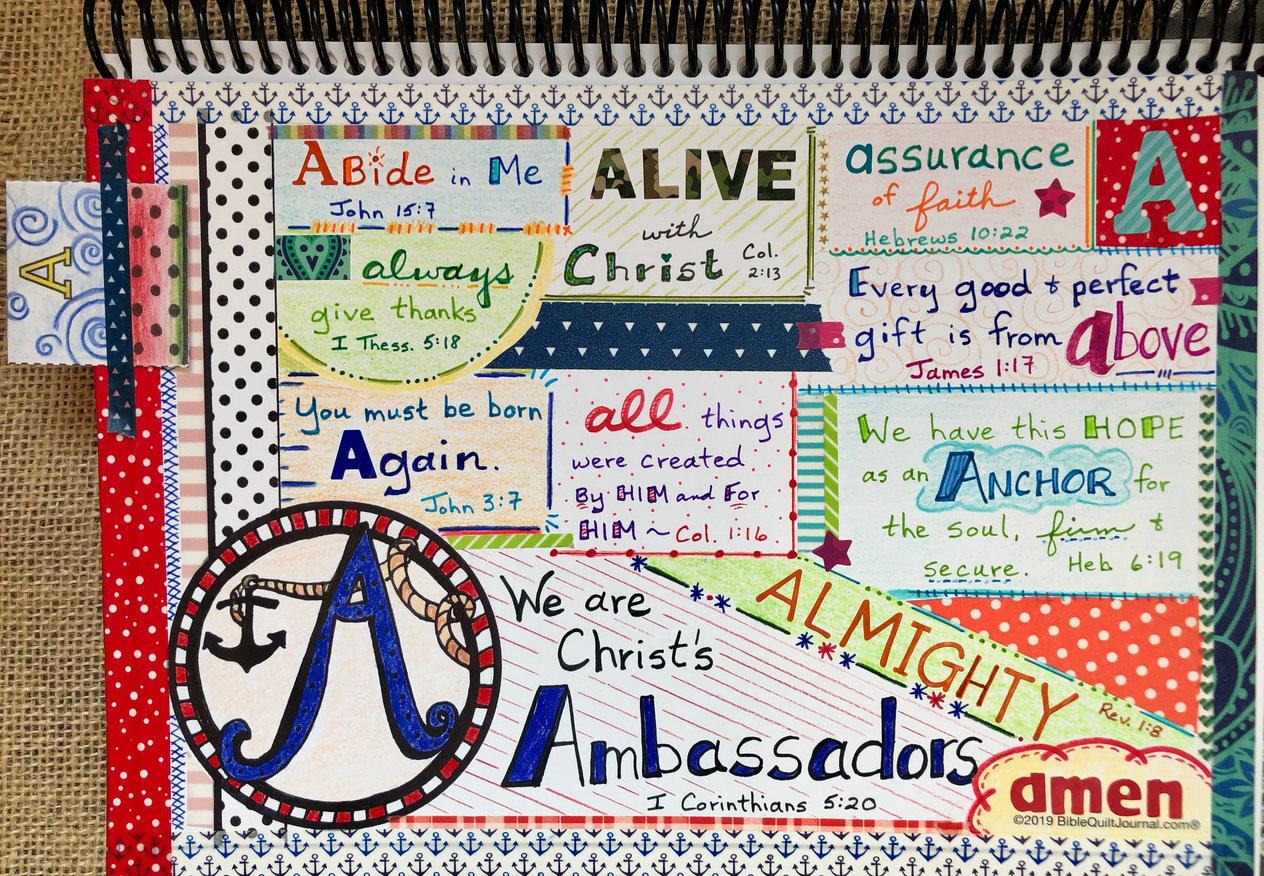 A
ABide in Me
John 15:7
ALIVE
with
Christ
Col.
2:13
assurance
of faith
Hebrews 10:22
A
always
give thanks
I Thess. 5:18
Every good & perfect
gift is from above
James 1:17
You must be born
Again.
John 3:7
all things
were created
By HIM and For
HIM ~ Col. 1:16
We have this HOPE
as an ANCHOR for
the soul, firm &
secure. Heb 6:19
A
We are
Christ's
Ambassadors
I Corinthians 5:20
ALMIGHTY
Rev. 1:8
amen
©2019 BibleQuiltJournal.com®